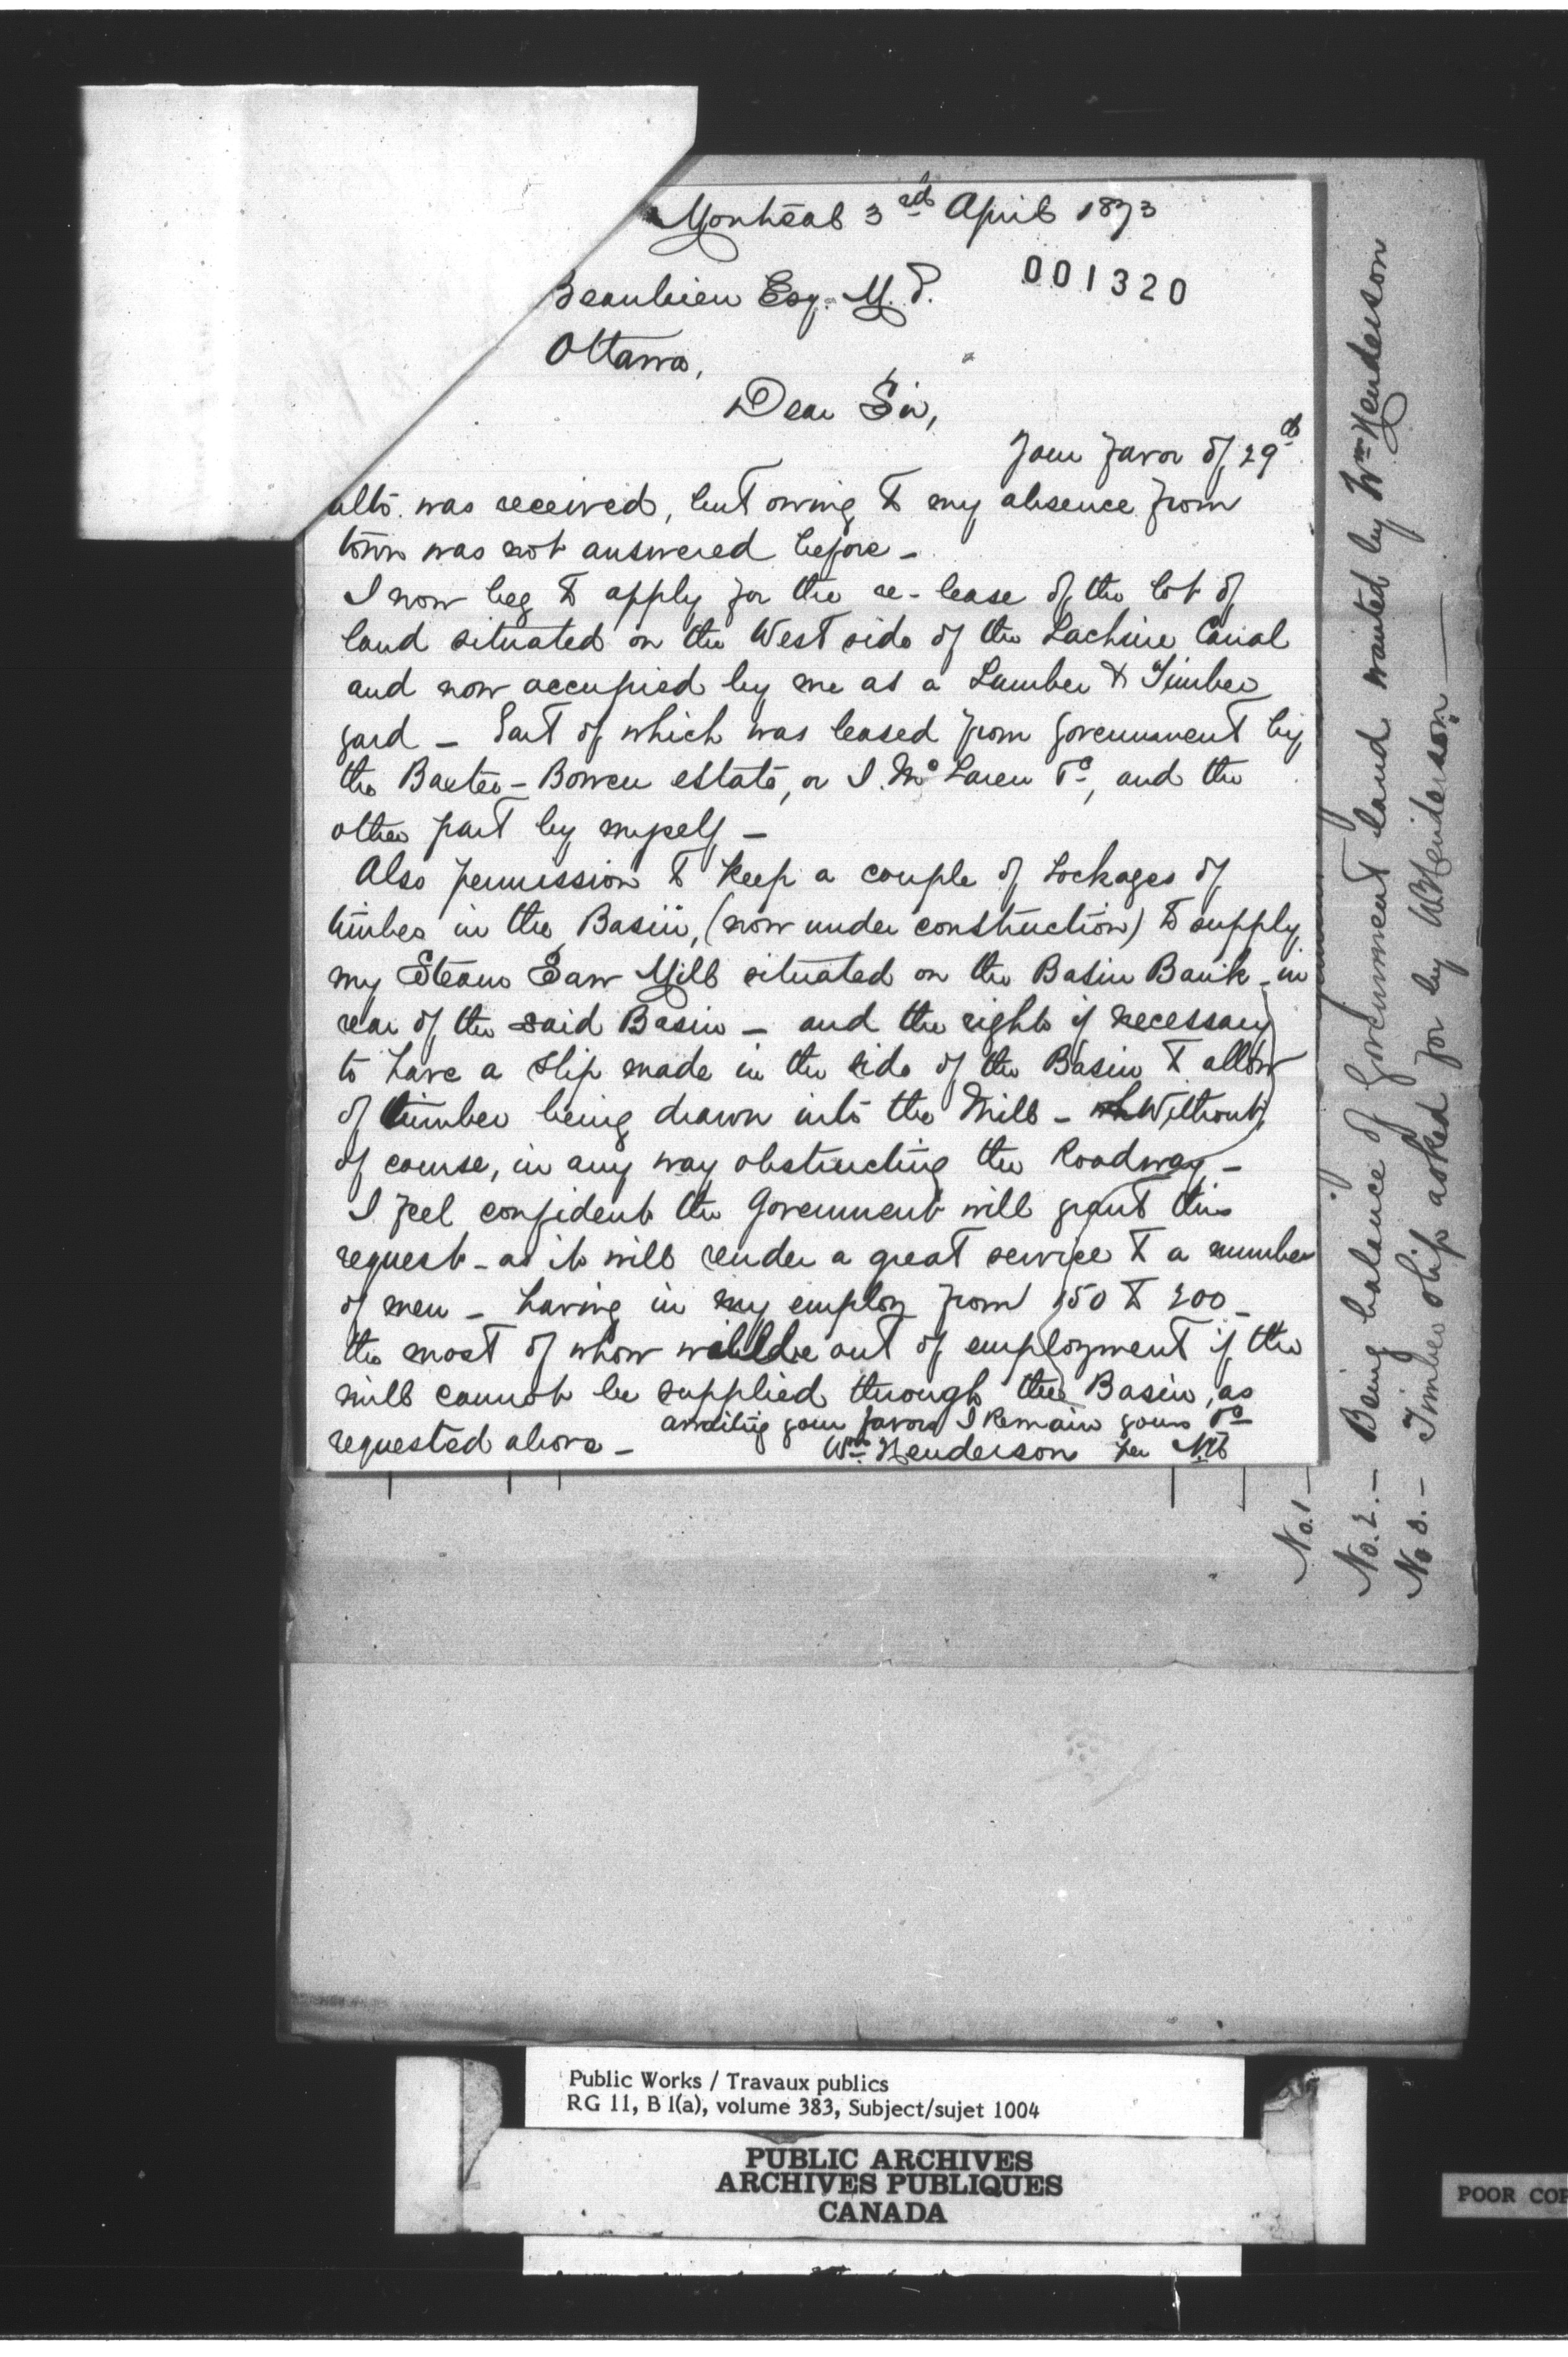 Montréal 3rd April 1873
001320
Beaubien Esq. M.P.
Ottawa,
Dear Sir,
Your favor of 29th
ulto. was received, but owing to my absence from
town was not answered before -
I now beg to apply for the re-lease of the lot of
land situated on the West side of the Lachine Canal
and now occupied by me as a Lumber & Timber
yard - Part of which was leased from government by
the Baxter-Bowen estate, or J. McLaren &c, and the
other part by myself -
Also permission to keep a couple of Lockages of
timber in the Basin, (now under construction) to supply
my Steam Saw Mill situated on the Basin Bank - in
rear of the said Basin - and the right if necessary
to have a slip made in the side of the Basin to allow
of timber being drawn into the Mill - Without,
of course, in any way obstructing the Roadway -
I feel confident the Government will grant this
request - as it will render a great service to a number
of men - having in my employ from 150 to 200 -
the most of whom will be out of employment if the
mill cannot be supplied through the Basin, as
requested above -
awaiting your favors I Remain yours &c
Wm Henderson
per
No. 1 -
No. 2. - Being balance of Government land wanted by Wm Henderson
No 3. - Timber slip asked for by W Henderson
Public Works / Travaux publics
RG 11, B 1(a), volume 383, Subject/sujet 1004
PUBLIC ARCHIVES
ARCHIVES PUBLIQUES
CANADA
POOR COP